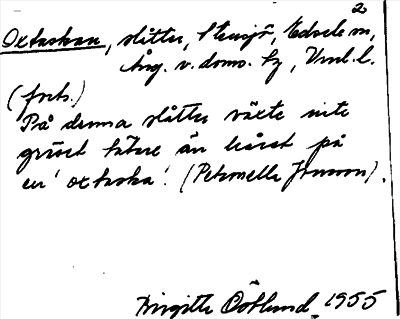 2
Oxtaskan, slåtter, Stensjö, Edsele sn,
Ång. v. doms. hg, Uml. l.
(forts.)
På denna slåtter växte inte
gräset tätare än håret på
en 'oxtaska'. (Petronella Jonsson).
Birgitta Östlund 1955